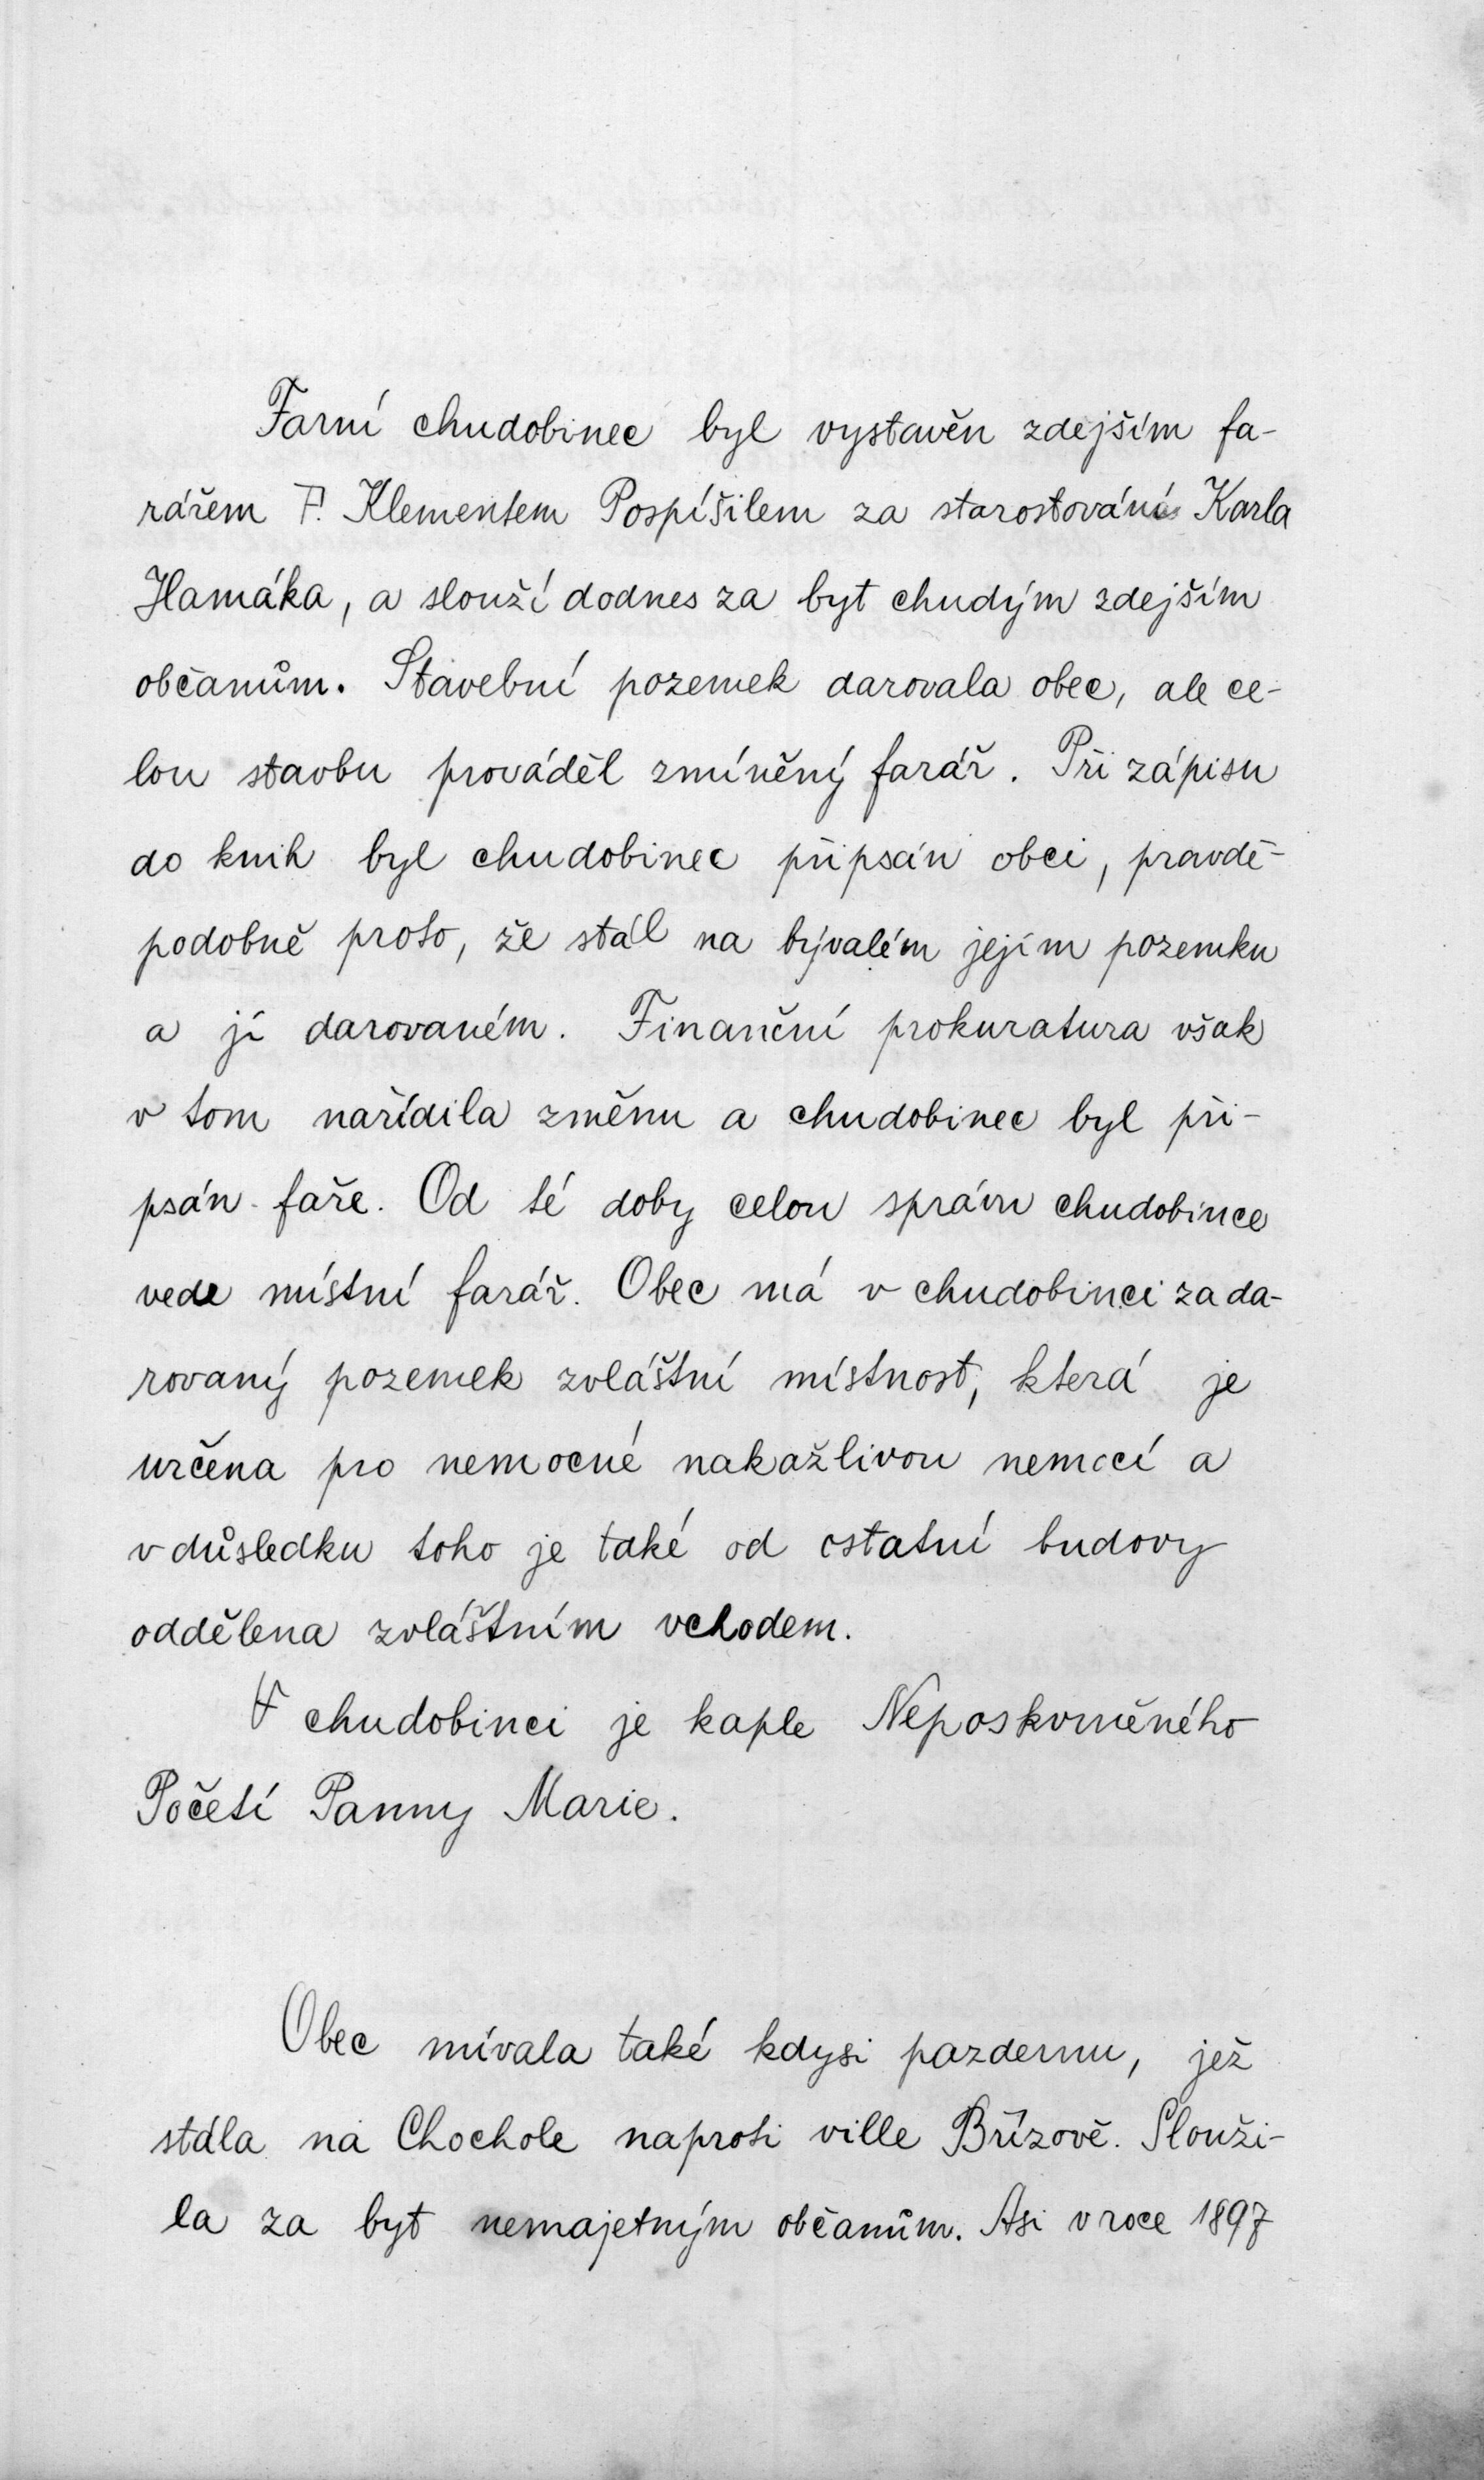 Farní chudobinec byl vystavěn zdejším fa-
rářem P. Klementem Pospíšilem za starostování Karla
Hamáka, a slouží dodnes za byt chudým zdejším
občanům. Stavební pozemek darovala obec, ale ce-
lou stavbu prováděl zmíněný farář. Při zápisu
do knih byl chudobinec připsán obci, pravdě-
podobně proto, že stál na bývalém jejím pozemku
a jí darovaném. Finanční prokuratura však
v tom nařídila změnu a chudobinec byl při-
psán faře. Od té doby celou správu chudobince
vede místní farář. Obec má v chudobinci za da-
rovaný pozemek zvláštní místnost, která je
určena pro nemocné nakažlivou nemocí a
v důsledku toho je také od ostatní budovy
oddělena zvláštním vchodem.
V chudobinci je kaple Neposkvrněného
Početí Panny Marie.
Obec mívala také kdysi pazdernu, jež
stála na Chochole naproti ville Břízově. Slouži-
la za byt nemajetným občanům. Asi v roce 1897